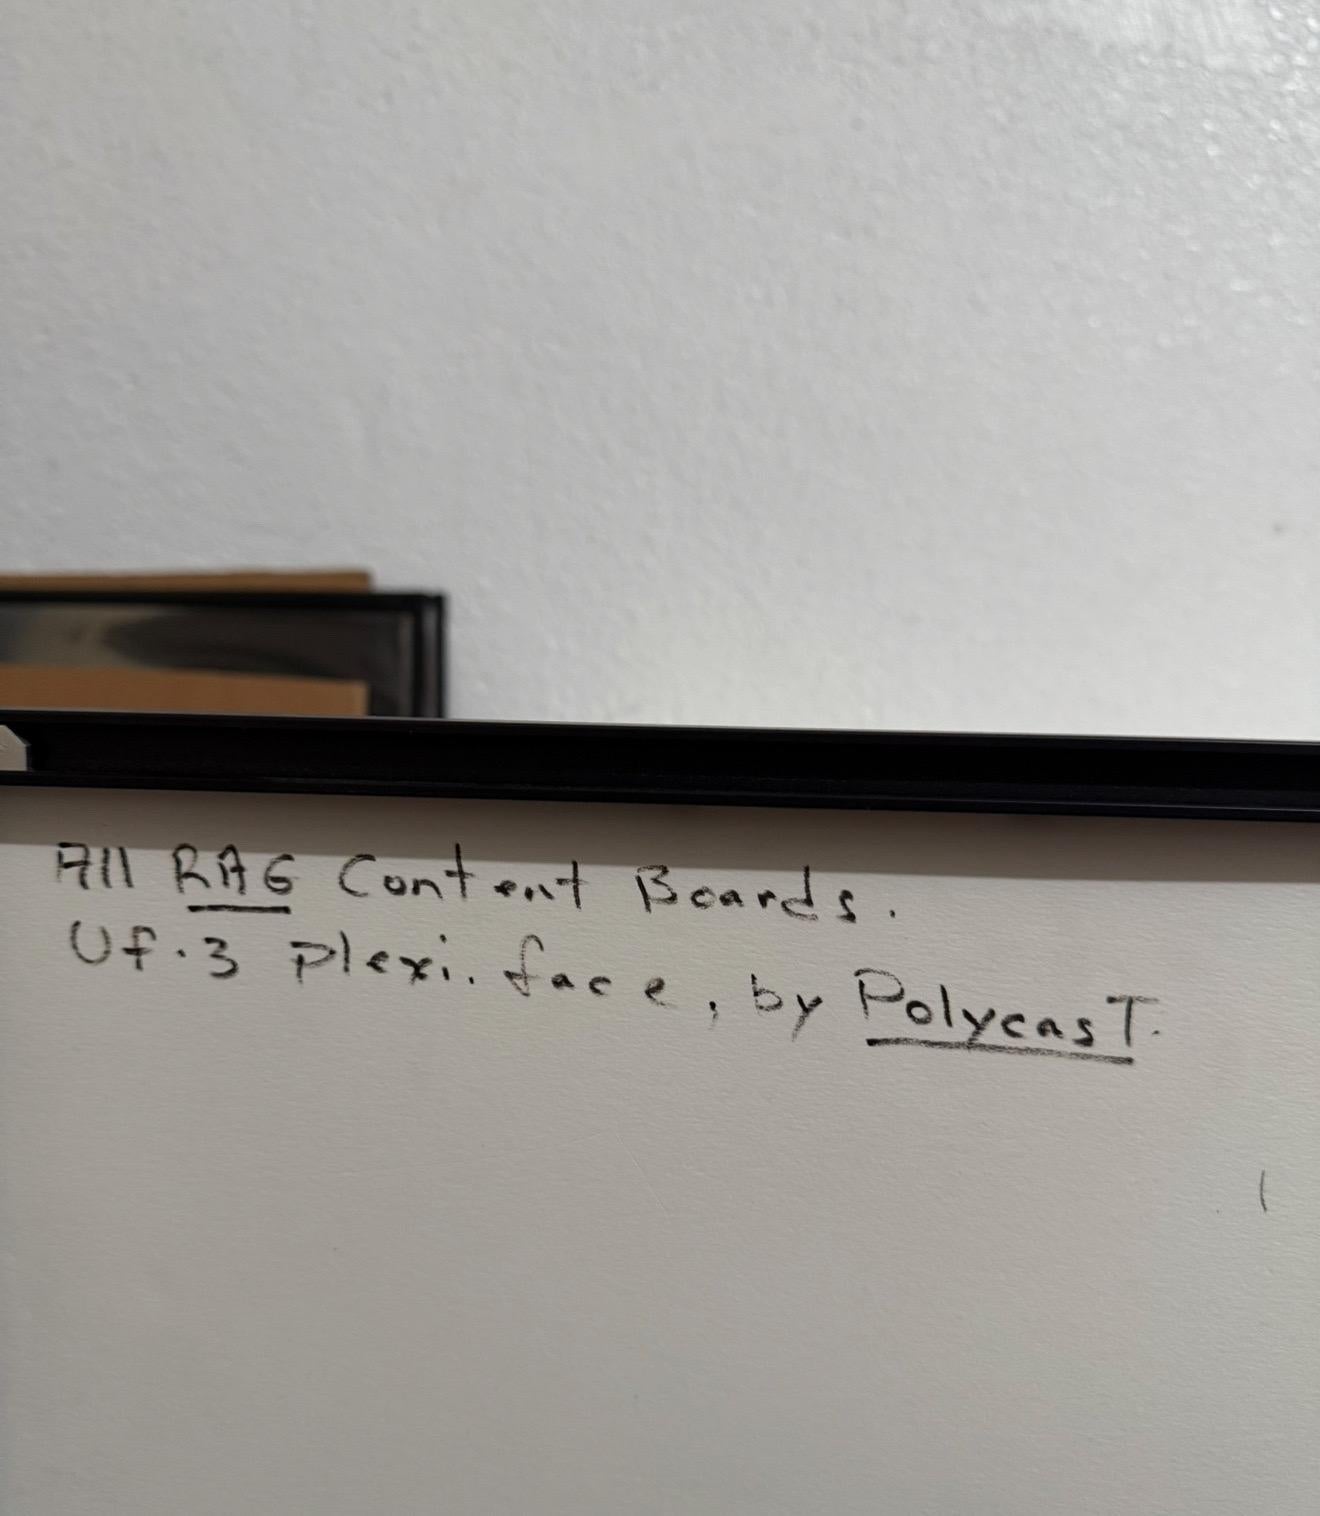 All RAG Content Boards.
Uf.3 Plexi. face, by PolycasT.